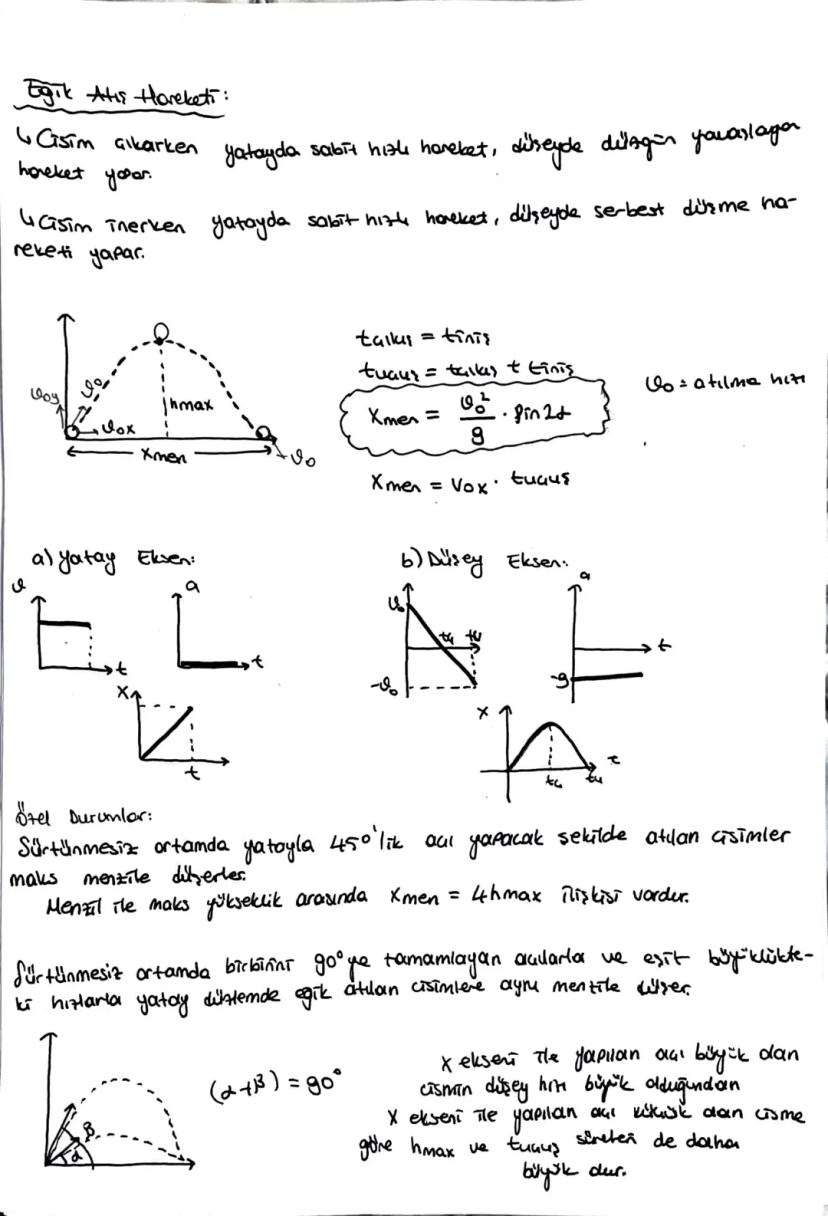 Eğik Atış Hareketi:
↳ Cisim çıkarken yatayda sabit hızlı hareket, düşeyde düzgün yavaşlayan
hareket yapar.
↳ Cisim inerken yatayda sabit hızlı hareket, düşeyde serbest düşme ha-
reketi yapar.
tçıkış = tiniş
tuçuş = tçıkış + tiniş
Xmen = (ϑ₀² / g) · sin2α
ϑ₀ = atılma hızı
Xmen = V₀x · tuçuş
ϑ₀y ϑ₀ hmax
ϑ₀x Xmen ϑ₀
a) Yatay Eksen: b) Düşey Eksen:
ϑ t a t
X t
ϑ₀ -ϑ₀ a t -g
X t
Özel Durumlar:
Sürtünmesiz ortamda yatayla 45°'lik açı yapacak şekilde atılan cisimler
maks menzile düşerler.
Menzil ile maks yükseklik arasında Xmen = 4hmax ilişkisi vardır.
Sürtünmesiz ortamda birbirini 90°ye tamamlayan açılarla ve eşit büyüklükte-
ki hızlarla yatay düzlemde eğik atılan cisimlere aynı menzile düşer.
(α+β) = 90°
β
α
X ekseni ile yapılan açı büyük olan
cismin düşey hızı büyük olduğundan
X ekseni ile yapılan açı küçük olan cisme
göre hmax ve tuçuş süreleri de daha
büyük olur.